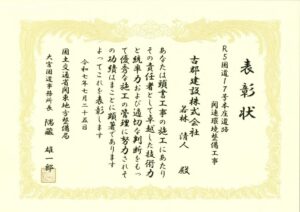 表彰状
R5国道17号本庄道路
関連環境整備工事
古郡建設株式会社
若林 清人 殿
あなたは頭書工事の施工にあたり
その責任者として卓越した技術力
と統率力および適切な判断をもっ
て優秀な施工の管理に努力されそ
の功績はまことに顕著であります
よってこれを表彰します
令和七年七月二十五日
国土交通省関東地方整備局
大宮国道事務所長
雄一郎